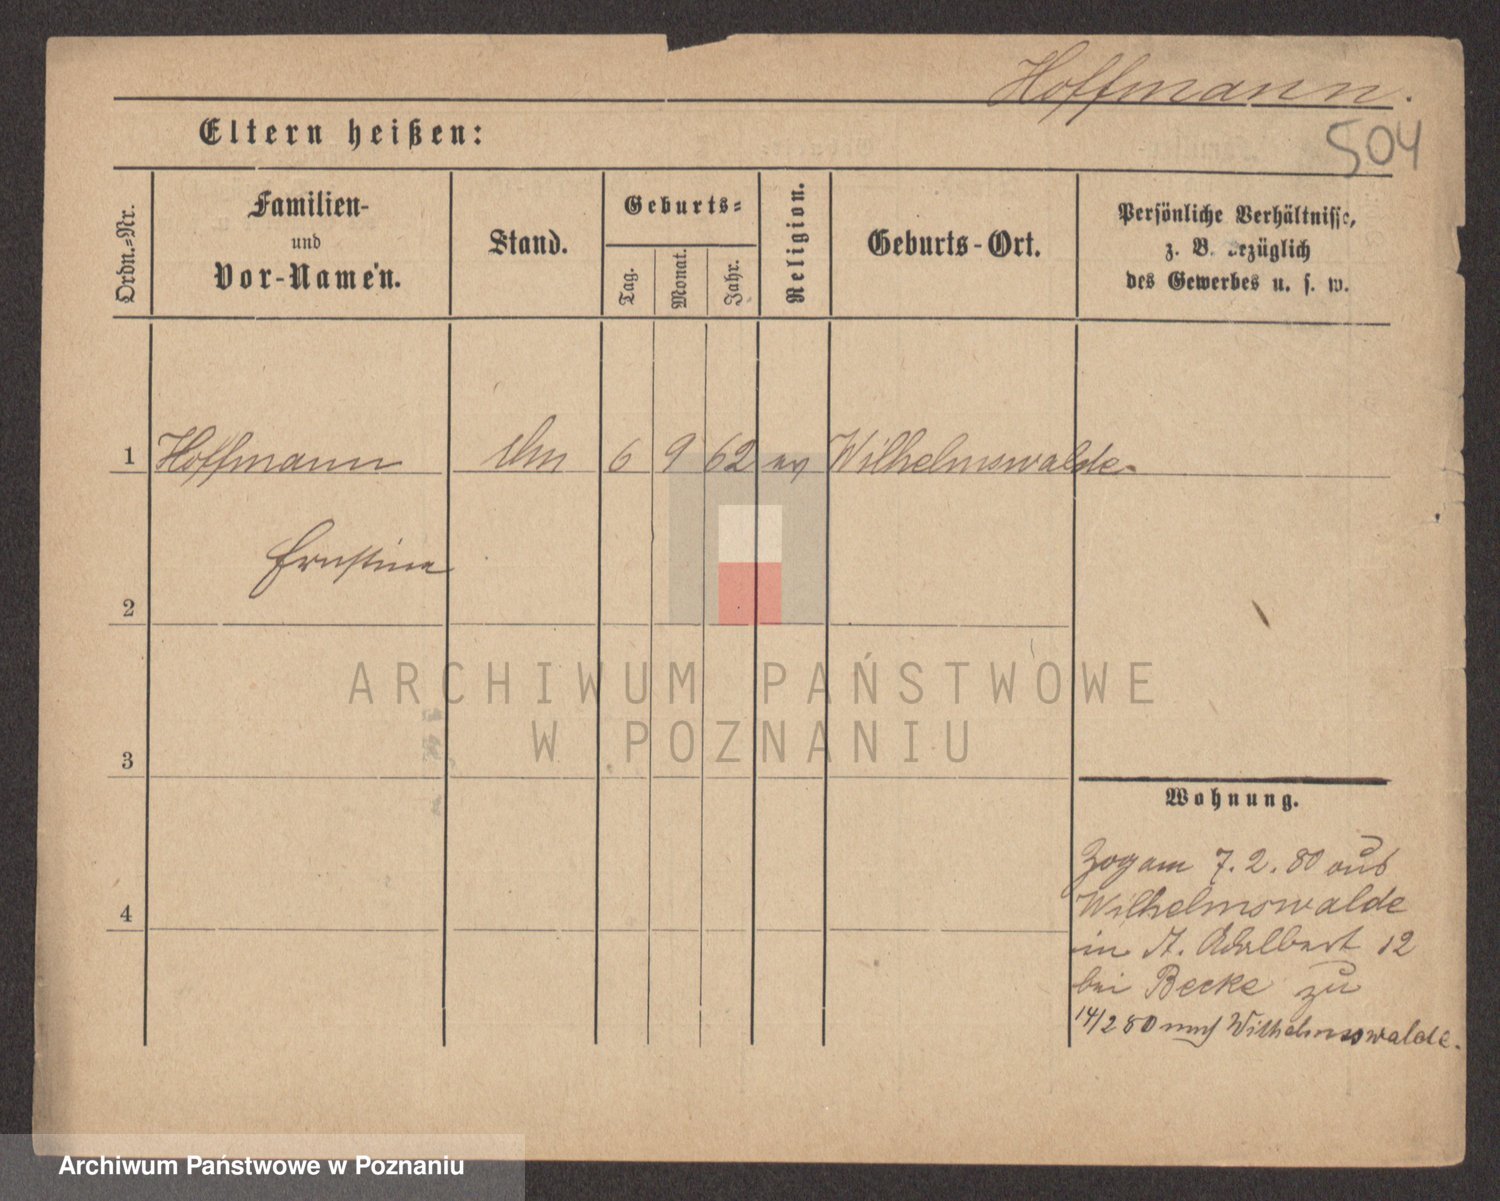 Hoffmann.
504
Eltern heißen:
Ordn.=Nr.
Familien-
und
Vor-Namen.
Stand.
Geburts=
Tag.
Monat.
Jahr.
Religion.
Geburts-Ort.
Persönliche Verhältnisse,
z. B. bezüglich
des Gewerbes u. s. w.
1 Hoffmann 6 9 62 ev Wilhelmswalde.
Ernstine
2
ARCHIWUM PAŃSTWOWE
W POZNANIU
3
Wohnung.
Zog am 7.2.80 aus
Wilhelmswalde
in St. Adalbert 12
bei Becke zu
14/2 80 nach Wilhelmswalde.
4
Archiwum Państwowe w Poznaniu